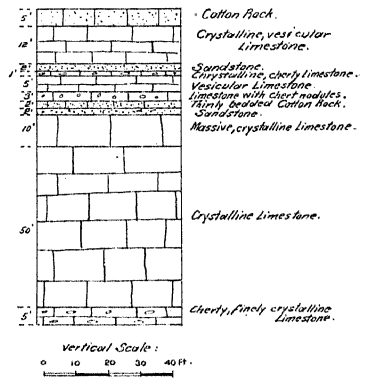 5' Cotton Rock.
12' Crystalline, vesicular
Limestone.
2' Sandstone.
1' Chrystalline, cherty limestone.
5' Vesicular Limestone.
3' Limestone with chert nodules.
2' Thinly bedded Cotton Rock.
2' Sandstone.
10' Massive, crystalline Limestone.
50' Crystalline Limestone.
5' Cherty, finely crystalline
Limestone.
Vertical Scale:
0 10 20 30 40 Ft.